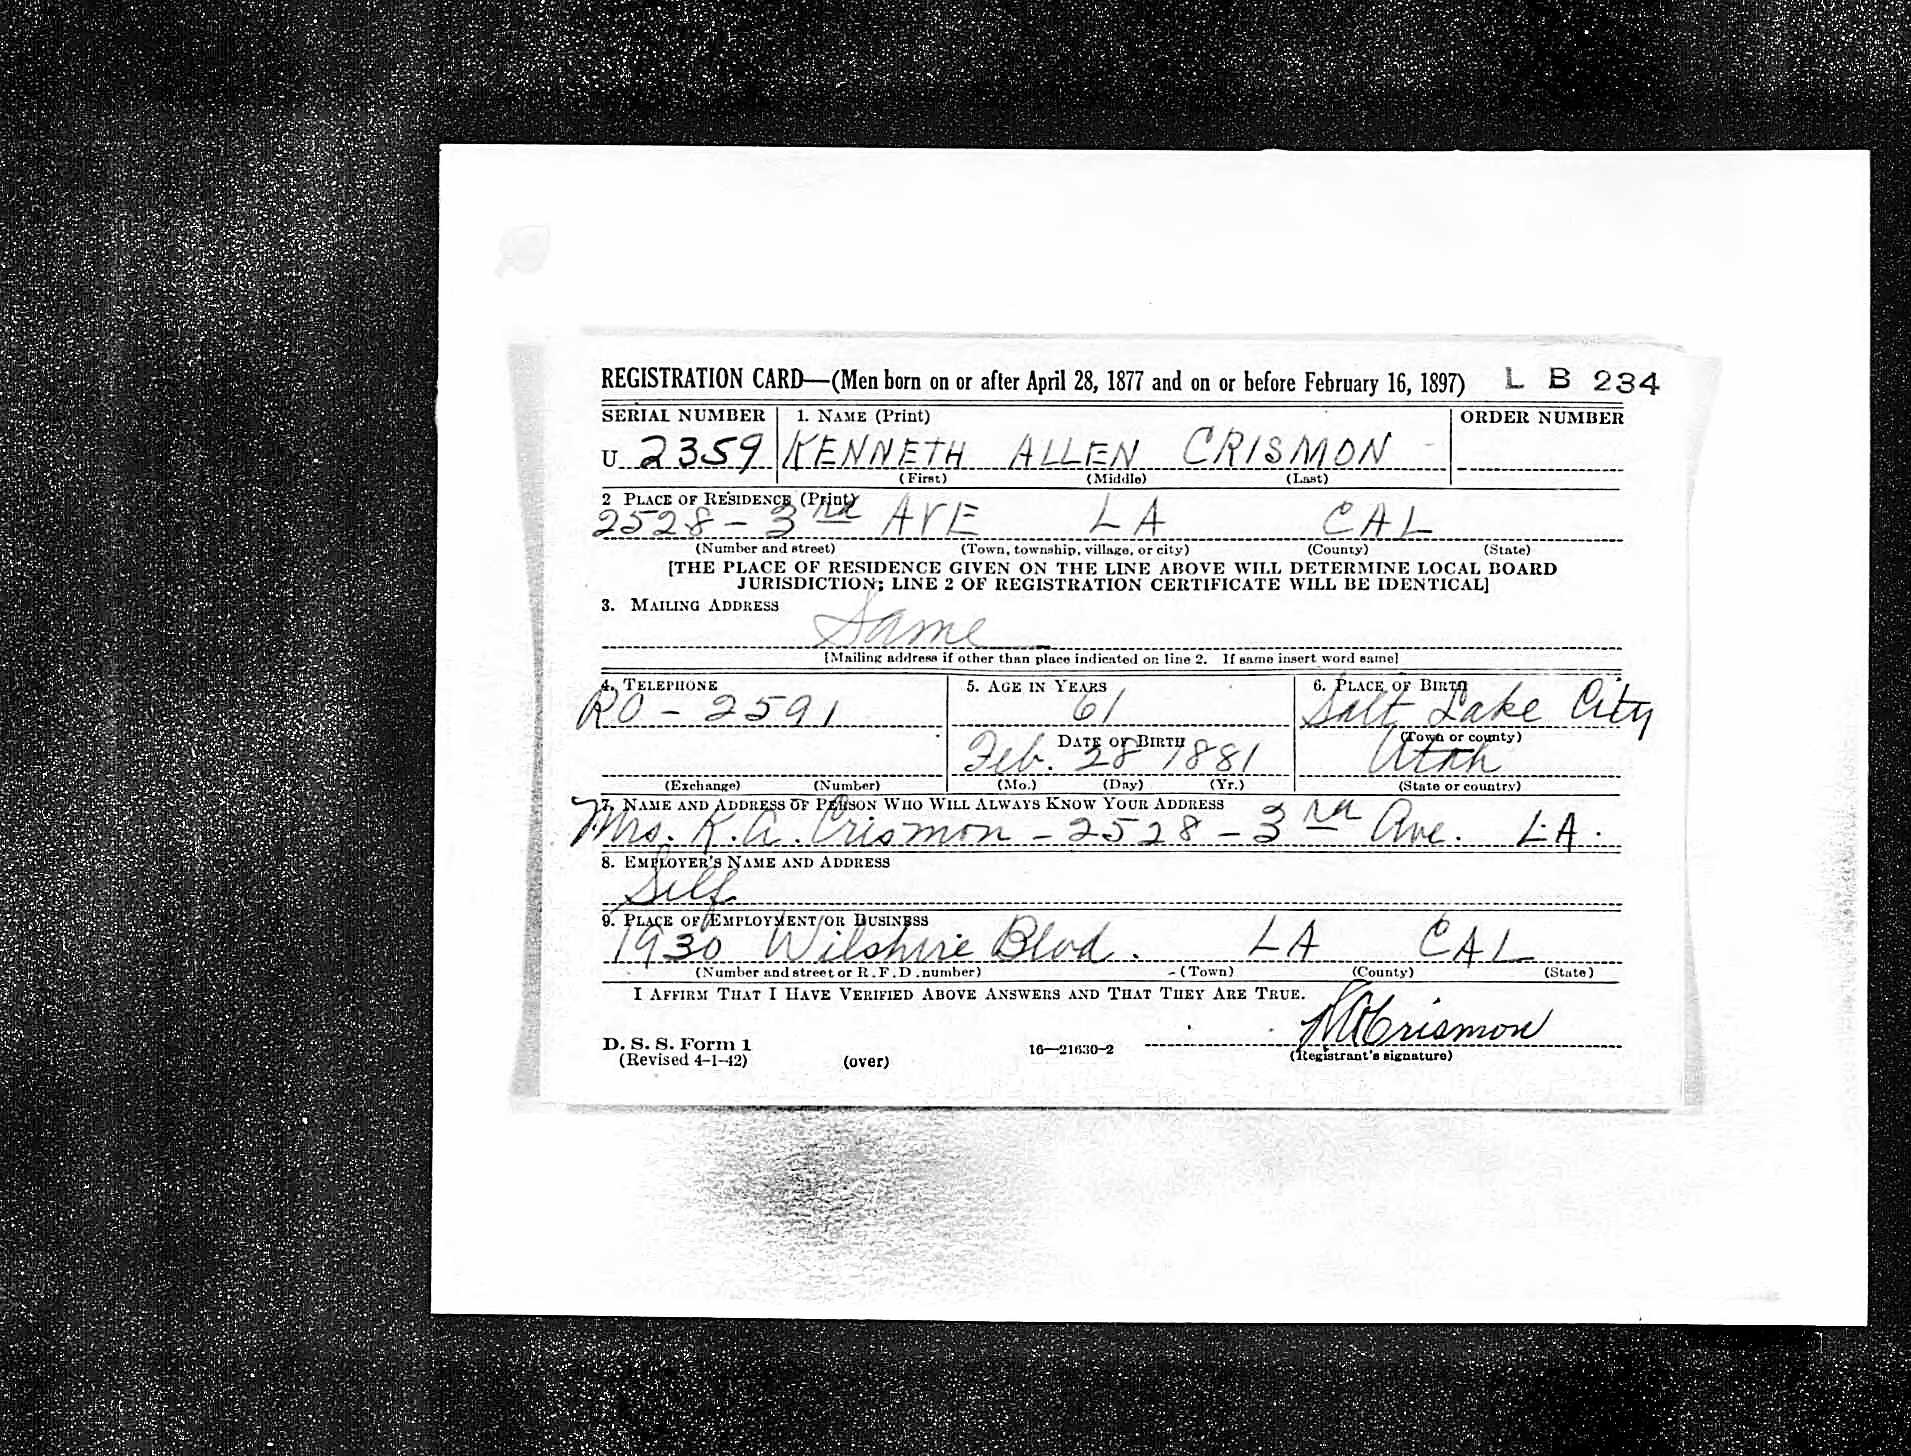 REGISTRATION CARD—(Men born on or after April 28, 1877 and on or before February 16, 1897) L B 234
SERIAL NUMBER 1. NAME (Print) ORDER NUMBER
U 2359 KENNETH ALLEN CRISMON
(First) (Middle) (Last)
2 PLACE OF RESIDENCE (Print)
2528 - 3rd AVE LA CAL
(Number and street) (Town, township, village, or city) (County) (State)
[THE PLACE OF RESIDENCE GIVEN ON THE LINE ABOVE WILL DETERMINE LOCAL BOARD
JURISDICTION; LINE 2 OF REGISTRATION CERTIFICATE WILL BE IDENTICAL]
3. MAILING ADDRESS
Same
[Mailing address if other than place indicated on line 2. If same insert word same]
4. TELEPHONE 5. AGE IN YEARS 6. PLACE OF BIRTH
RO - 2591 61 Salt Lake City
DATE OF BIRTH (Town or county)
Feb. 28 1881 Utah
(Exchange) (Number) (Mo.) (Day) (Yr.) (State or country)
7. NAME AND ADDRESS OF PERSON WHO WILL ALWAYS KNOW YOUR ADDRESS
Mrs. K.A. Crismon - 2528 - 3rd Ave. LA.
8. EMPLOYER'S NAME AND ADDRESS
Self
9. PLACE OF EMPLOYMENT OR BUSINESS
1930 Wilshire Blvd. LA CAL
(Number and street or R.F.D. number) (Town) (County) (State)
I AFFIRM THAT I HAVE VERIFIED ABOVE ANSWERS AND THAT THEY ARE TRUE.
KACrismon
D. S. S. Form 1
(Revised 4-1-42) (over) 16—21630-2 (Registrant's signature)